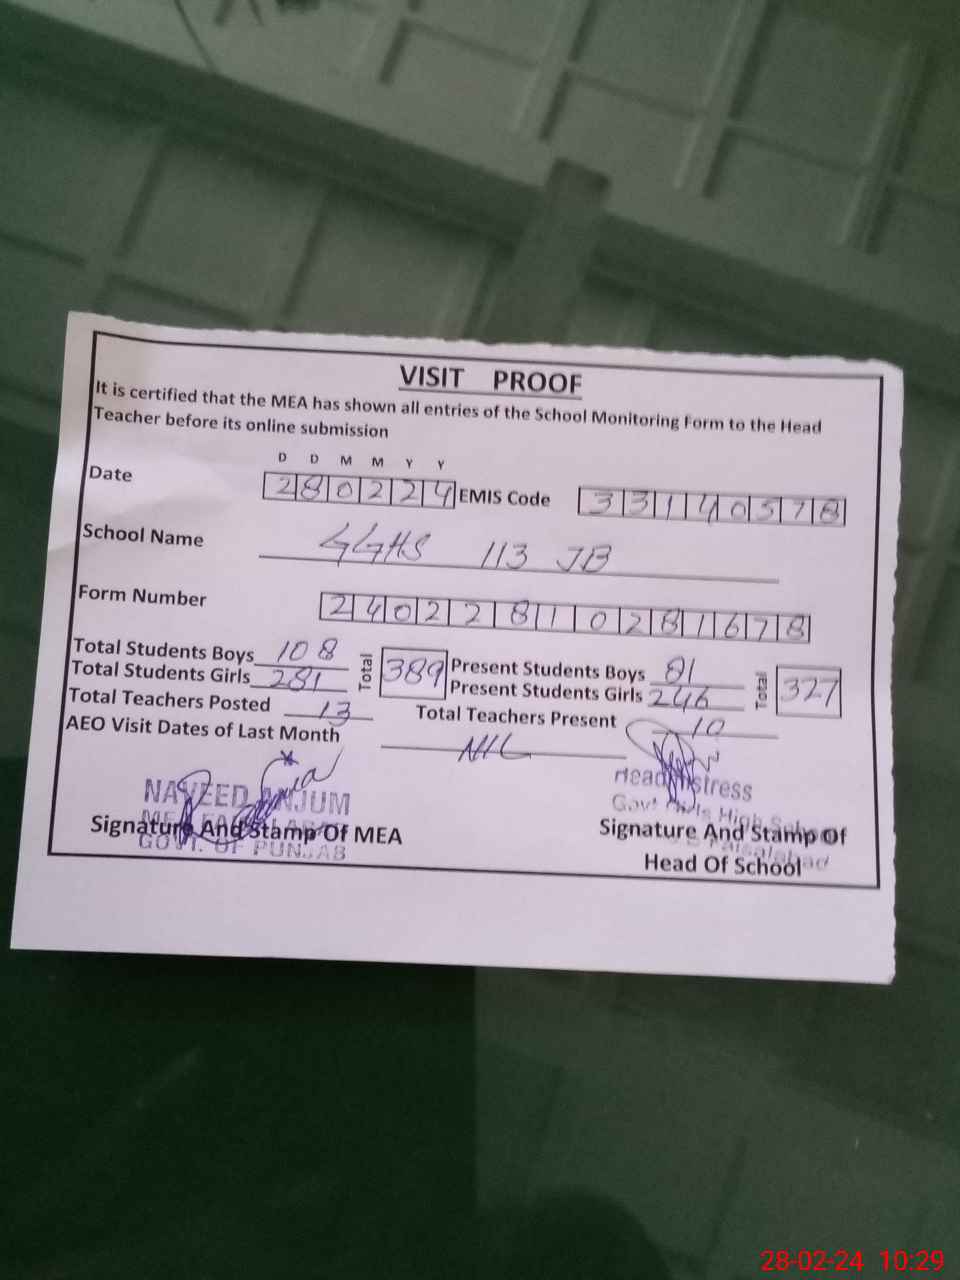 VISIT PROOF
It is certified that the MEA has shown all entries of the School Monitoring Form to the Head
Teacher before its online submission
D D M M Y Y
Date 280224 EMIS Code 33140578
School Name GGHS 113 JB
Form Number 24022810281678
Total Students Boys 108 Total 389 Present Students Boys 81 Total 327
Total Students Girls 281 Present Students Girls 246
Total Teachers Posted 13 Total Teachers Present 10
AEO Visit Dates of Last Month NIL
NAVEED ANJUM
GOVT. OF PUNJAB
Signature And Stamp Of MEA
Headmistress
Govt Girls High School
Faisalabad
Signature And Stamp Of
Head Of School
28-02-24 10:29